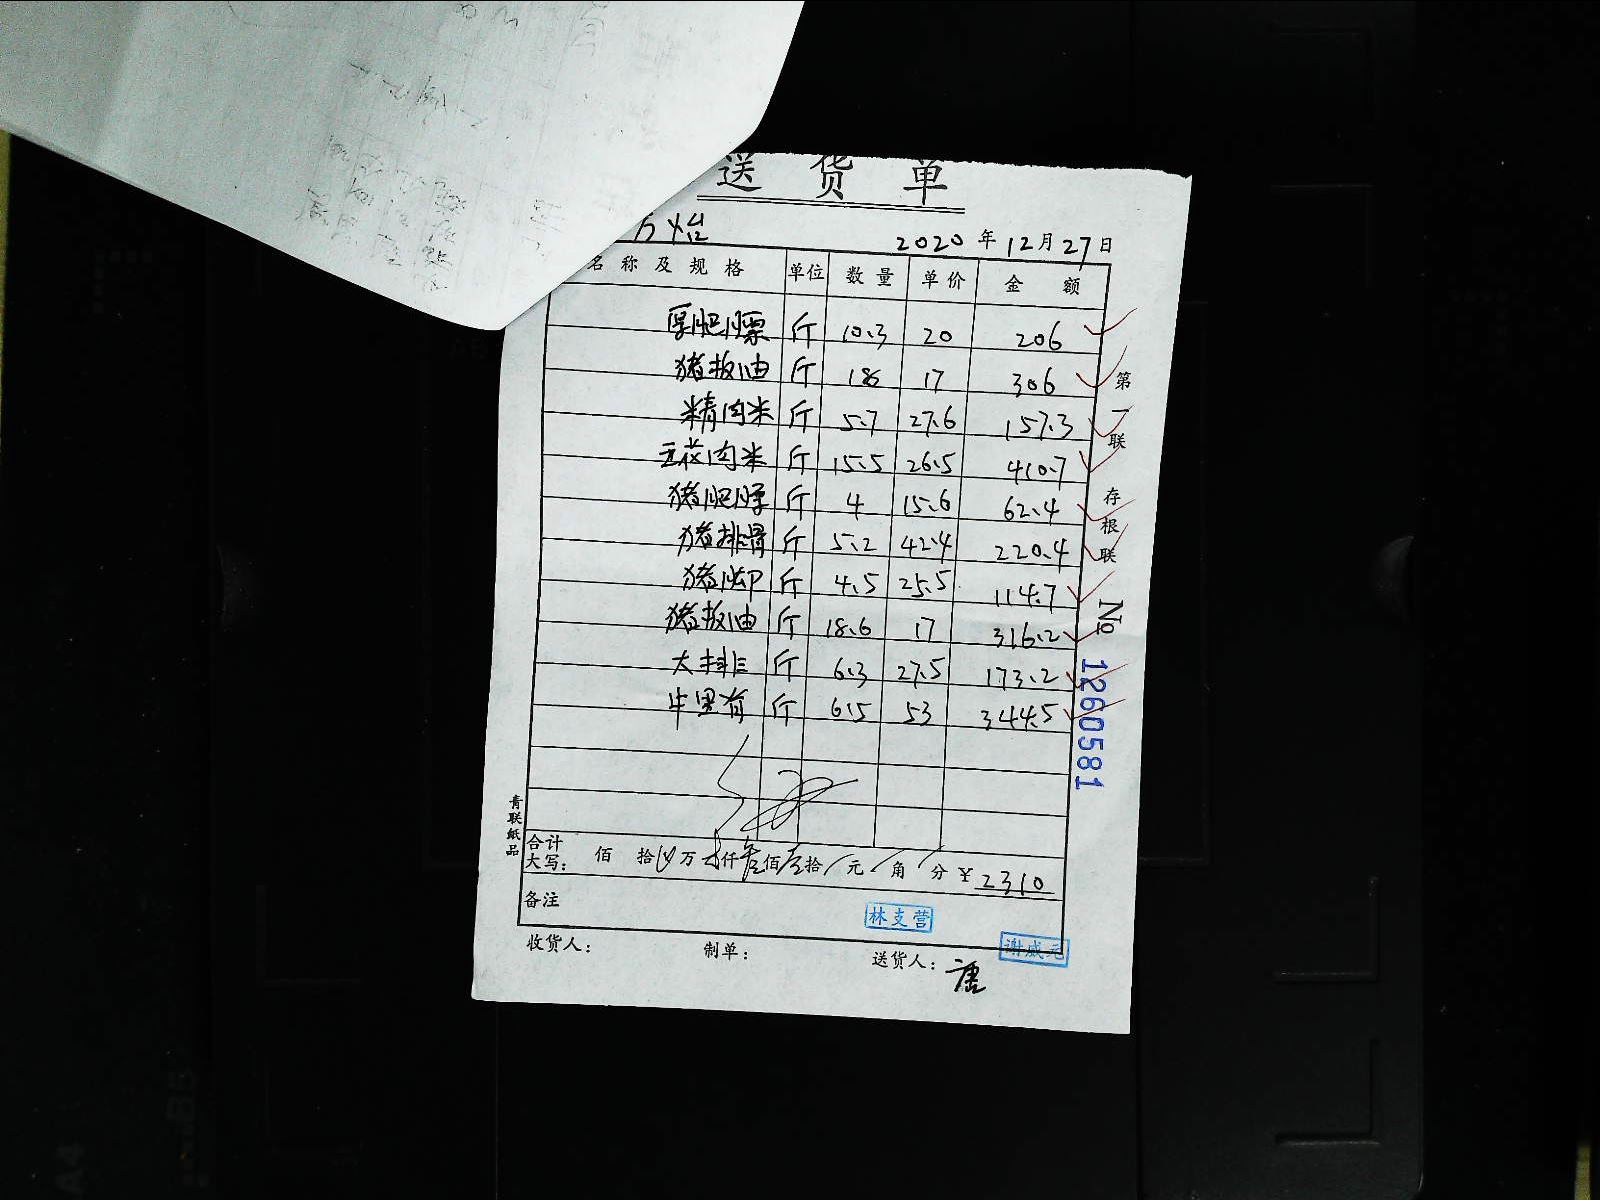 送货单
2020年12月27日
名称及规格 单位 数量 单价 金额
厚肥膘 斤 10.3 20 206
猪板油 斤 18 17 306
精肉米 斤 5.7 27.6 157.3
五花肉米 斤 15.5 26.5 410.7
猪肥膘 斤 4 15.6 62.4
猪排骨 斤 5.2 42.4 220.4
猪脚 斤 4.5 25.5 114.7
猪板油 斤 18.6 17 316.2
大排 斤 6.3 27.5 173.2
牛里脊 斤 6.5 53 344.5
第一联 存根联
№ 1260581
青联纸品
合计
大写： 佰 拾 万 仟叁佰壹拾 元 角 分 ¥2310
备注
林支营
谢威元
收货人： 制单： 送货人：唐